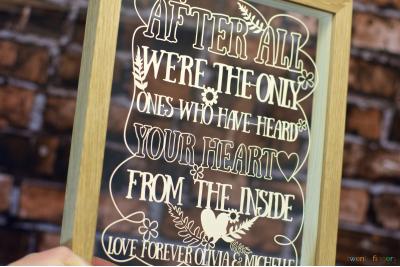 AFTER ALL
WE'RE THE ONLY
ONES WHO HAVE HEARD
YOUR HEART
FROM THE INSIDE
LOVE, FOREVER OLIVIA & MICHELLE